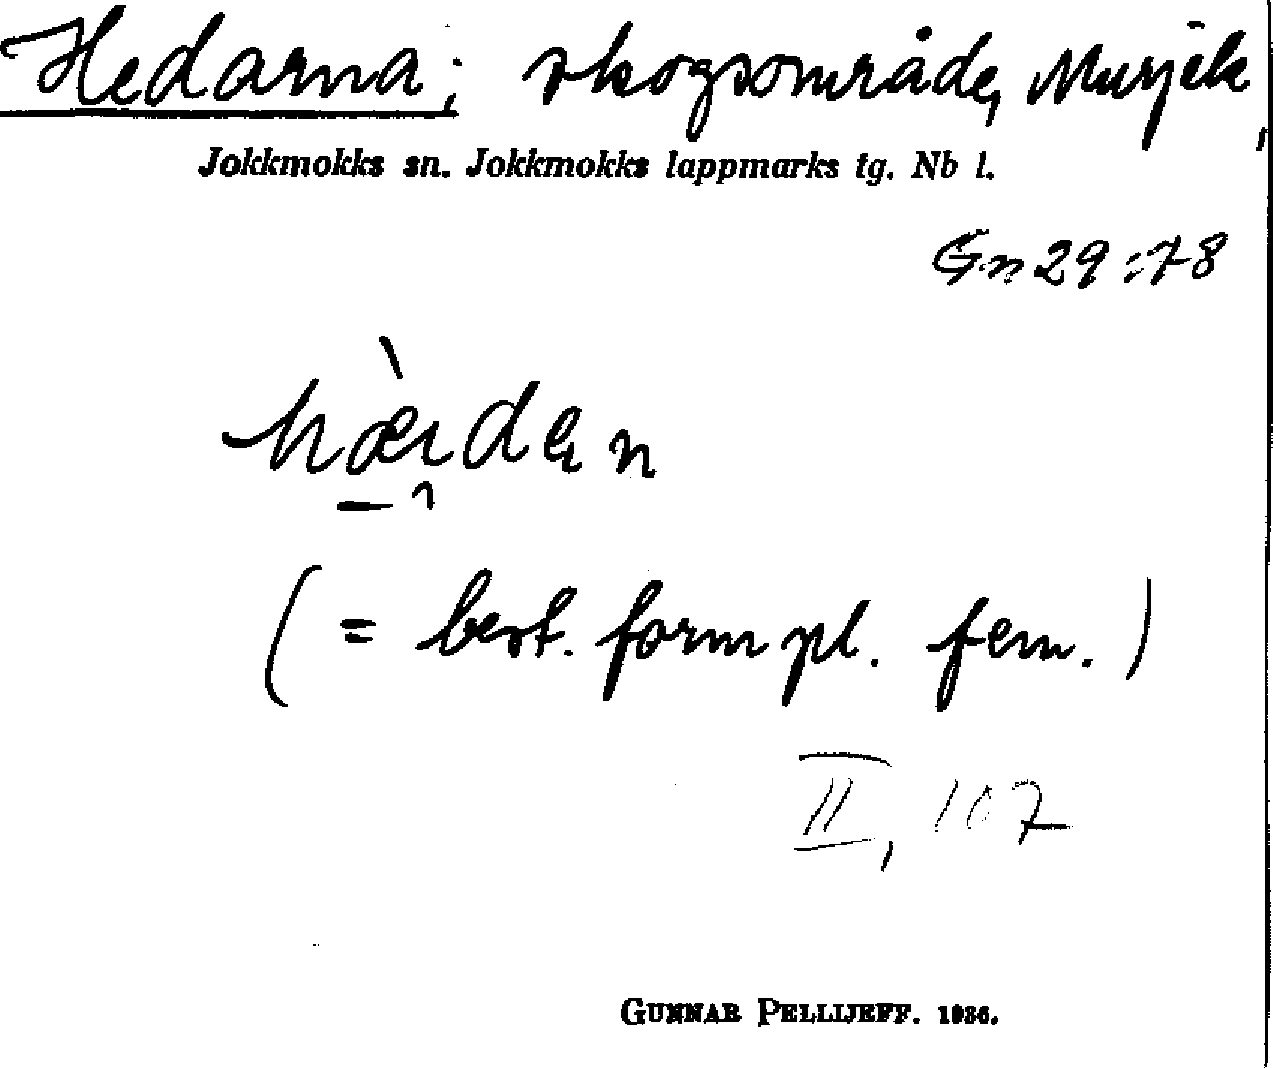 Hedarna; skogsområde, Murjek,
Jokkmokks sn. Jokkmokks lappmarks tg. Nb l.
Gn 29:78
hæ̀ıdεn
(= best. form pl. fem.)
II, 107
GUNNAR PELLIJEFF. 1936.